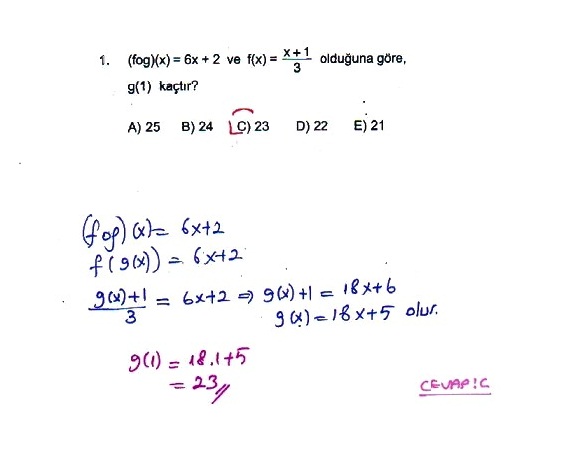 1. (fog)(x) = 6x + 2 ve f(x) = x+1/3 olduğuna göre,
g(1) kaçtır?
A) 25 B) 24 C) 23 D) 22 E) 21
(fog)(x) = 6x+2
f(g(x)) = 6x+2
g(x)+1/3 = 6x+2 ⇒ g(x)+1 = 18x+6
g(x) = 18x+5 olur.
g(1) = 18.1+5
= 23//
CEVAP:C